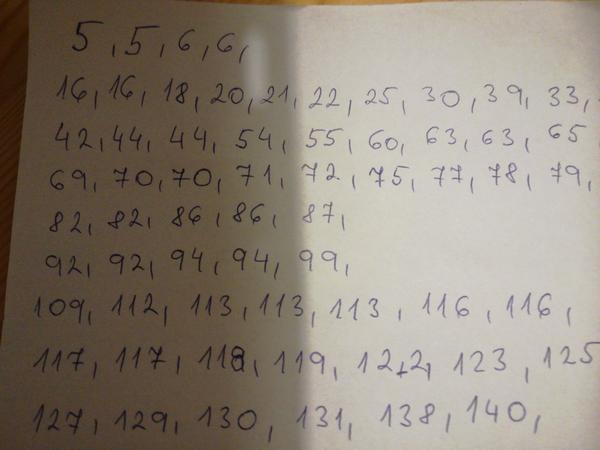 5, 5, 6, 6,
16, 16, 18, 20, 21, 22, 25, 30, 39, 33,
42, 44, 44, 54, 55, 60, 63, 63, 65
69, 70, 70, 71, 72, 75, 77, 78, 79,
82, 82, 86, 86, 87,
92, 92, 94, 94, 99,
109, 112, 113, 113, 113, 116, 116,
117, 117, 118, 119, 122, 123, 125
127, 129, 130, 131, 138, 140,